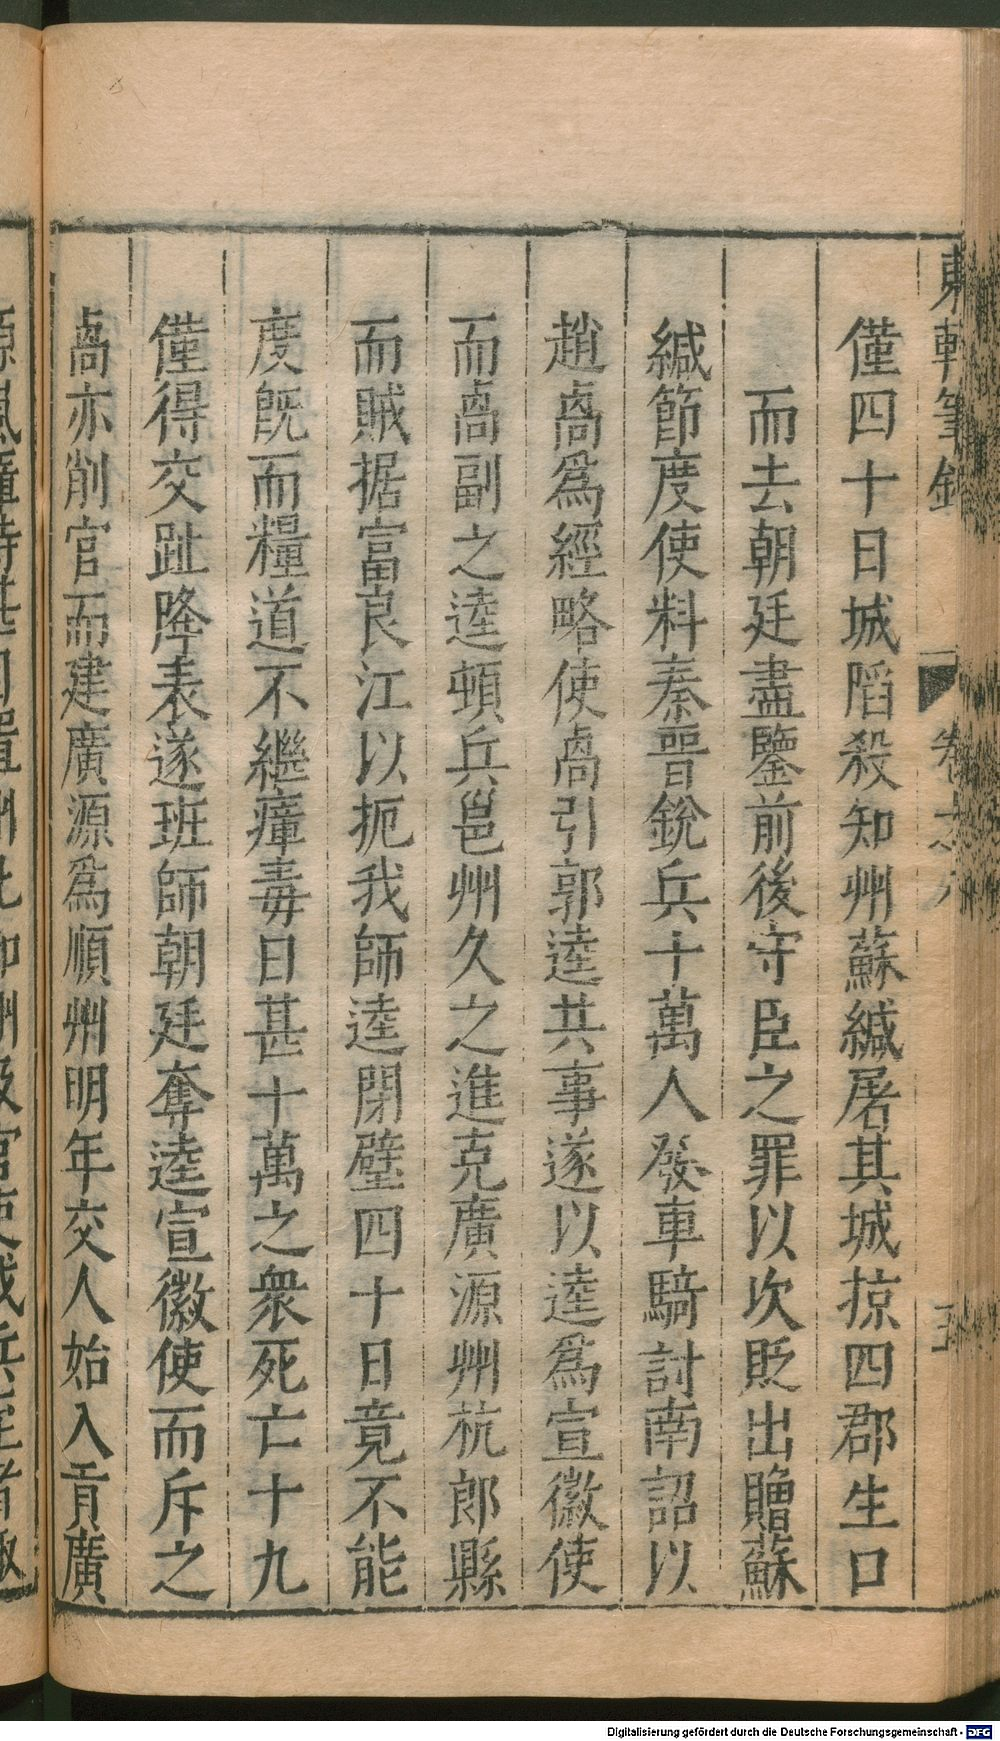 東軒筆錄 卷之八 五
僅四十日城䧟殺知州蘇緘屠其城掠四郡生口
而去朝廷盡鑒前後守臣之罪以次貶出贈蘇
緘節度使料秦晉銳兵十萬人發車騎討南詔以
趙卨爲經略使卨引郭逵共事遂以逵爲宣徽使
而卨副之逵頓兵邕州久之進克廣源州杭郎縣
而賊据富良江以扼我師逵閉壁四十日竟不能
度旣而糧道不繼瘴毒日甚十萬之衆死亡十九
僅得交趾降表遂班師朝廷奪逵宣徽使而斥之
卨亦削官而建廣源爲順州明年交人始入貢廣
Digitalisierung gefördert durch die Deutsche Forschungsgemeinschaft - DFG